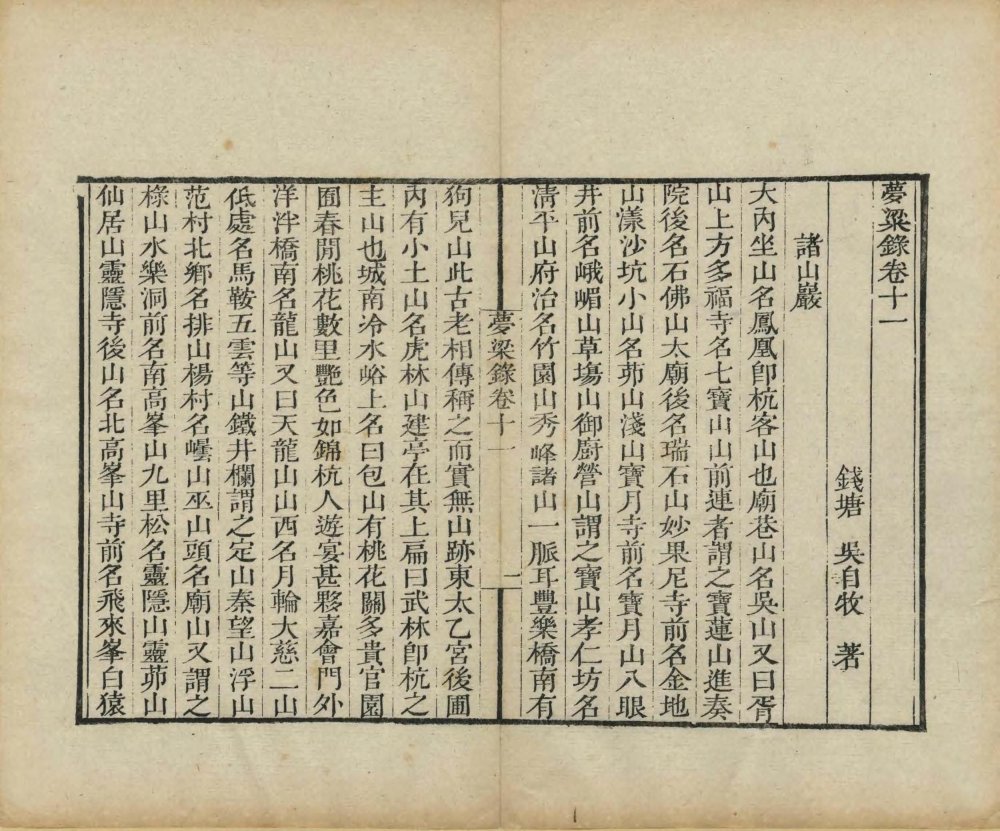 夢粱錄卷十一
錢塘 吳自牧 著
諸山巖
大內坐山名鳳凰卽杭客山也廟巷山名吳山又曰胥
山上方多福寺名七寶山山前連者謂之寶蓮山進奏
院後名石佛山太廟後名瑞石山妙果尼寺前名金地
山漾沙坑小山名茆山淺山寶月寺前名寶月山八眼
井前名峨嵋山草塲山御廚營山謂之寶山孝仁坊名
淸平山府治名竹園山秀峰諸山一脈耳豐樂橋南有
夢粱錄卷十一 一
狗兒山此古老相傳稱之而實無山跡東太乙宮後圃
內有小土山名虎林山建亭在其上扁曰武林卽杭之
主山也城南冷水峪上名曰包山有桃花關多貴官園
囿春開桃花數里艷色如錦杭人遊宴甚夥嘉會門外
洋泮橋南名龍山又曰天龍山山西名月輪大慈二山
低處名馬鞍五雲等山鐵井欄謂之定山秦望山浮山
范村北鄉名排山楊村名嶁山巫山頭名廟山又謂之
椂山水樂洞前名南高峯山九里松名靈隱山靈茆山
仙居山靈隱寺後山名北高峯山寺前名飛來峯白猿